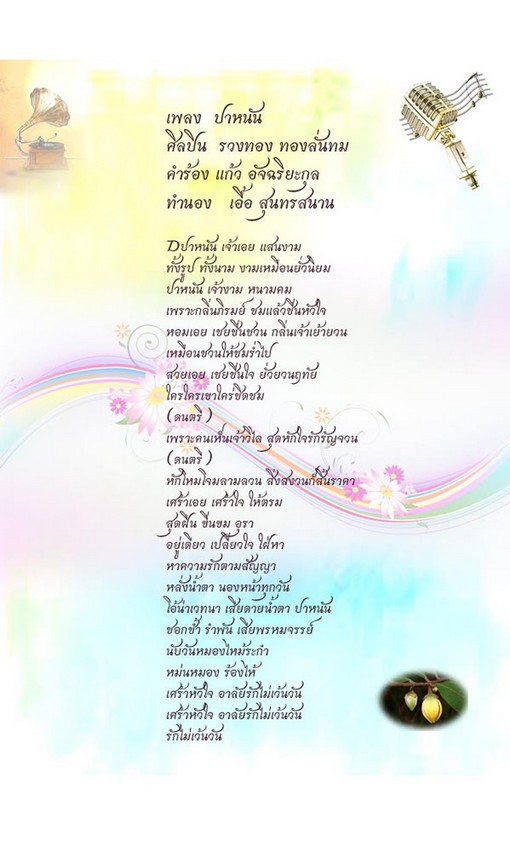 เพลง ปาหนัน
ศิลปิน รวงทอง ทองลั่นทม
คำร้อง แก้ว อัจฉริยะกุล
ทำนอง เอื้อ สุนทรสนาน
Dปาหนัน เจ้าเอย แสนงาม
ทั้งรูป ทั้งนาม งามเหมือนยั่วนิยม
ปาหนัน เจ้างาม หนามคม
เพราะกลิ่นภิรมย์ ชมแล้วชื่นหัวใจ
หอมเอย เชยชื่นชวน กลิ่นเจ้าเย้ายวน
เหมือนชวนให้ชมร่ำไป
สวยเอย เชยชื่นใจ ยั่วยวนฤทัย
ใครใครเขาใคร่ชิดชม
(ดนตรี)
เพราะคนเห็นเจ้าวิไล สุดหักใจรักรัญจวน
(ดนตรี)
หักโหมโจมลามลวน สิ่งสงวนก็สิ้นราคา
เศร้าเอย เศร้าใจ ให้ตรม
สุดฝืน ขื่นขม อุรา
อยู่เดียว เปลี่ยวใจ ใฝ่หา
หาความรักตามสัญญา
หลั่งน้ำตา นองหน้าทุกวัน
โอ้น่าเวทนา เสียดายน้ำตา ปาหนัน
ชอกช้ำ รำพัน เสียพรหมจรรย์
นับวันหมองไหม้ระกำ
หม่นหมอง ร้องไห้
เศร้าหัวใจ อาลัยรักไม่เว้นวัน
เศร้าหัวใจ อาลัยรักไม่เว้นวัน
รักไม่เว้นวัน